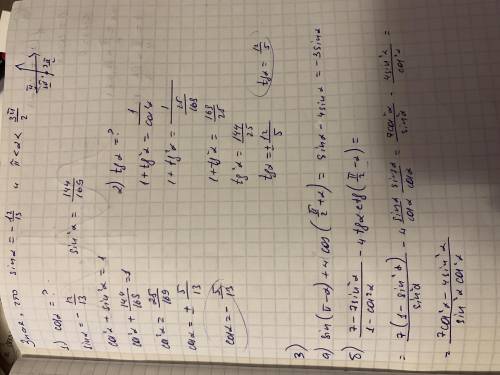 Зная, что sin α = -12/13 и π < α < 3π/2
1) cos α = ?
sin α = -12/13 sin²α = 144/169
cos²α + sin²α = 1
cos²α + 144/169 = 1
cos²α = 25/169
cos α = ± 5/13
cos α = - 5/13
2) tg α = ?
1 + tg²α = 1/cos²α
1 + tg²α = 1/(25/169)
1 + tg²α = 169/25
tg²α = 144/25
tg α = ± 12/5
tg α = 12/5
3)
а) sin(π-α) + 4 cos(π/2+α) = sin α - 4 sin α = -3 sin α
б) (7-7sin²α)/(1-cos²α) - 4 tg α ctg(π/2-α) =
= 7(1-sin²α)/sin²α - 4 sin α/cos α · sin α/cos α = 7cos²α/sin²α - 4sin²α/cos²α =
= (7cos²α - 4sin²α)/(sin²α cos²α)